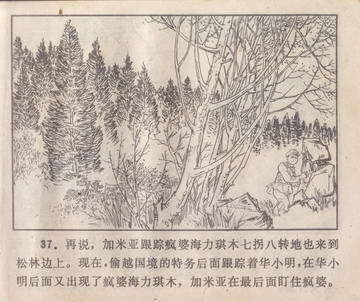 37. 再说，加米亚跟踪疯婆海力琪木七拐八转地也来到
松林边上。现在，偷越国境的特务后面跟踪着华小明，在华小
明后面又出现了疯婆海力琪木，加米亚在最后面盯住疯婆。